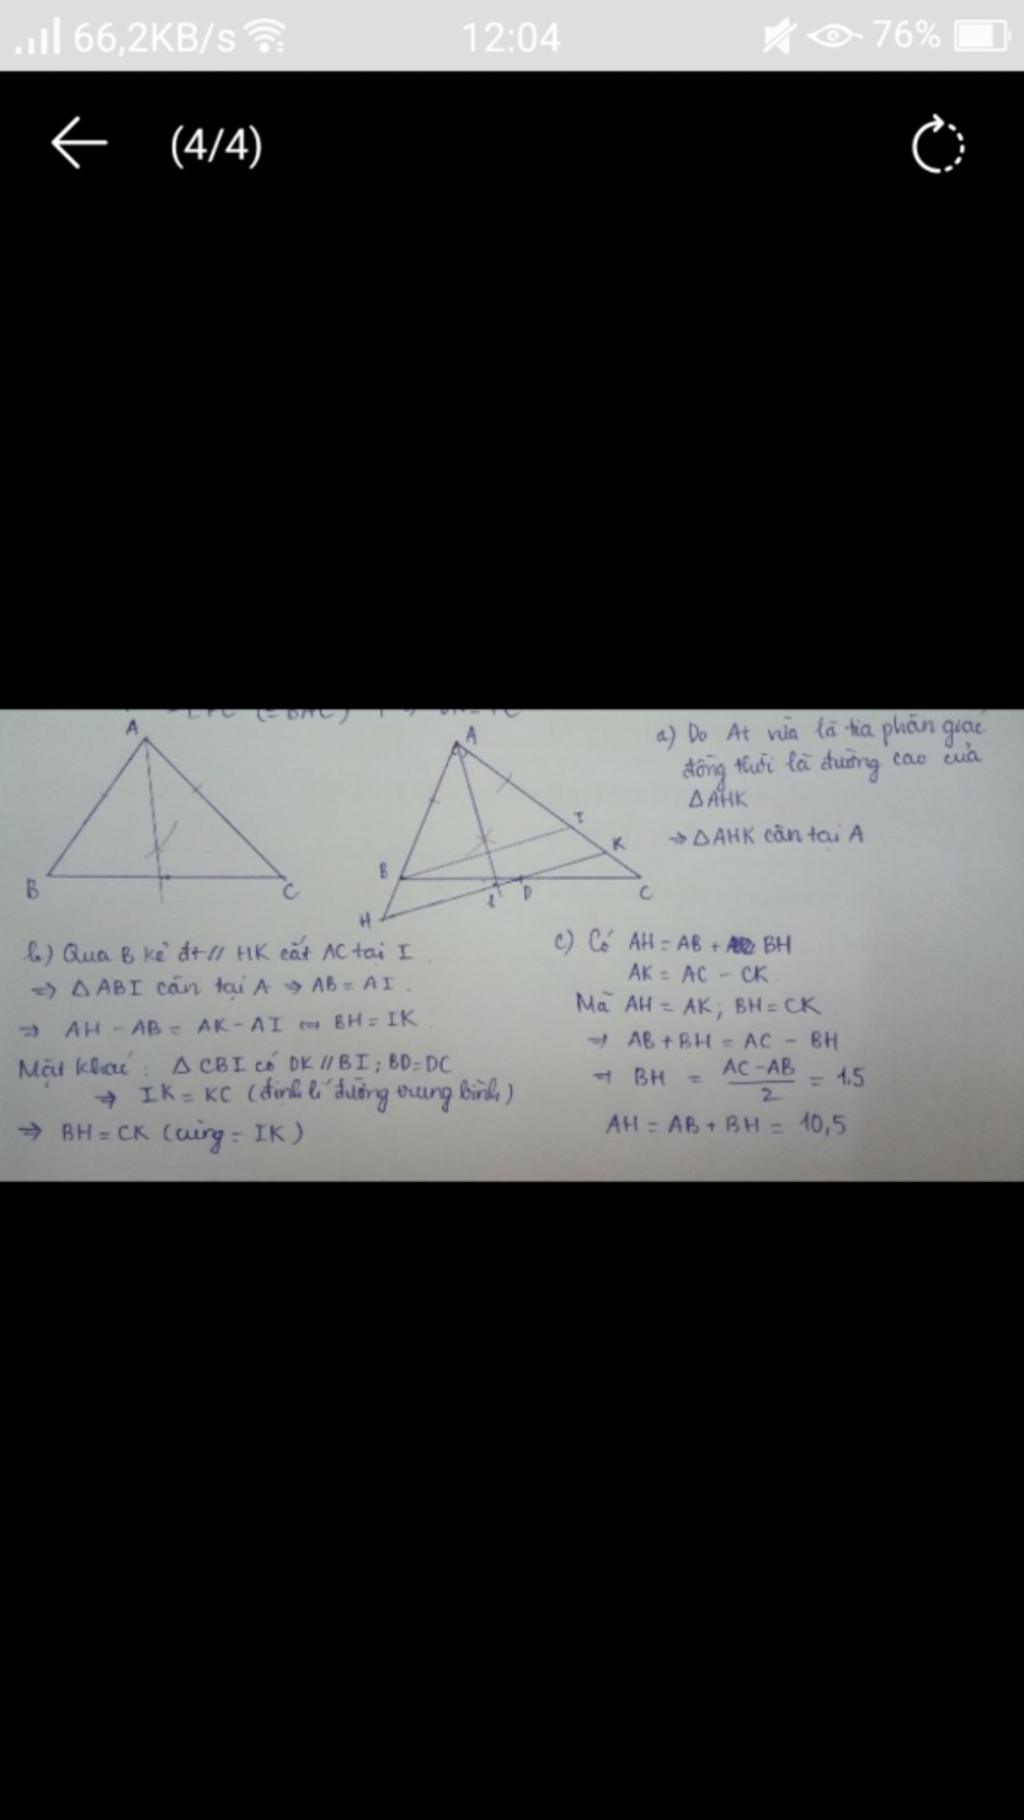 66,2KB/s 12:04 76%
(4/4)
A
B
C
A
I
K
B
t
D
C
H
a) Do At vừa là tia phân giác
đồng thời là đường cao của
△AHK
⇒ △AHK cân tại A
b) Qua B kẻ đt // HK cắt AC tại I
⇒ △ABI cân tại A ⇒ AB = AI.
⇒ AH - AB = AK - AI ⇔ BH = IK
Mặt khác: △CBI có DK // BI; BD = DC
⇒ IK = KC (định lí đường trung bình)
⇒ BH = CK (cùng = IK)
c) Có AH = AB + BH
AK = AC - CK
Mà AH = AK; BH = CK
⇒ AB + BH = AC - BH
⇒ BH = AC - AB / 2 = 1,5
AH = AB + BH = 10,5